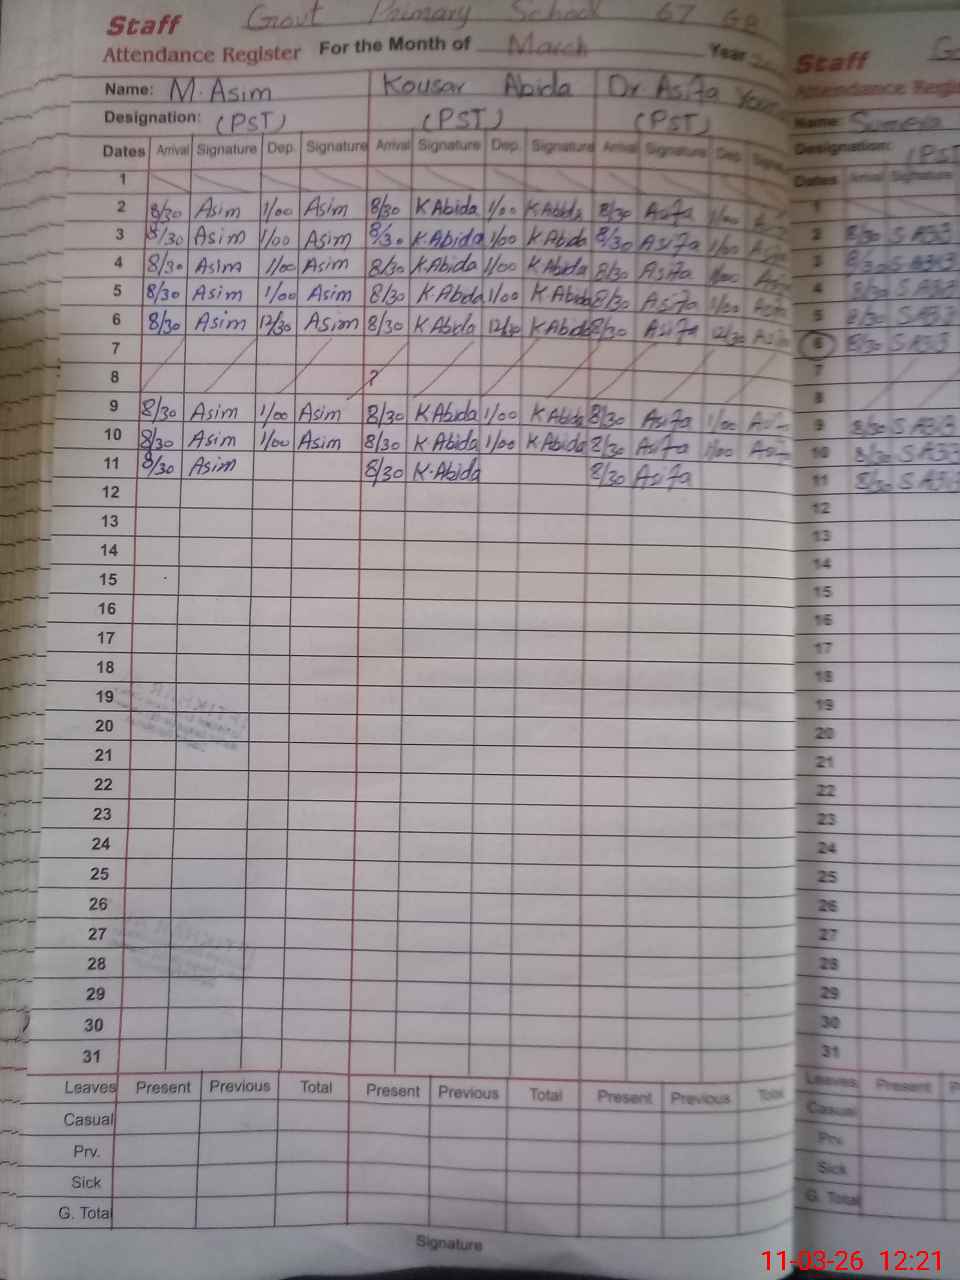 Staff Govt Primary School 67 GB
Attendance Register For the Month of March Year
Name: M.Asim Kousar Abida Dr Asifa
Designation: (PST) (PST) (PST)
Dates Arrival Signature Dep. Signature Arrival Signature Dep. Signature Arrival Signature Dep. Signature
1
2 8/30 Asim 1/00 Asim 8/30 K Abida 1/00 K Abida 8/30 Asifa 1/00
3 8/30 Asim 1/00 Asim 8/30 K Abida 1/00 K Abida 8/30 Asifa 1/00
4 8/30 Asim 1/00 Asim 8/30 K Abida 1/00 K Abida 8/30 Asifa 1/00
5 8/30 Asim 1/00 Asim 8/30 K Abida 1/00 K Abida 8/30 Asifa 1/00
6 8/30 Asim 12/30 Asim 8/30 K Abida 12/30 K Abida 8/30 Asifa 12/30
7
8
9 8/30 Asim 1/00 Asim 8/30 K Abida 1/00 K Abida 8/30 Asifa 1/00
10 8/30 Asim 1/00 Asim 8/30 K Abida 1/00 K Abida 8/30 Asifa 1/00
11 8/30 Asim 8/30 K.Abida 8/30 Asifa
12
13
14
15
16
17
18
19
20
21
22
23
24
25
26
27
28
29
30
31
Leaves Present Previous Total Present Previous Total Present Previous Total
Casual
Prv.
Sick
G. Total
Signature
Staff
Attendance
Name:
Designation: (PST
Dates Arrival Signature
1
2 8/30
3 8/30
4 8/30
5 8/30
6 8/30
7
8
9 8/30
10 8/30
11 8/30
12
13
14
15
16
17
18
19
20
21
22
23
24
25
26
27
28
29
30
31
Leaves Present
Casual
Prv.
Sick
G. Total
11-03-26 12:21